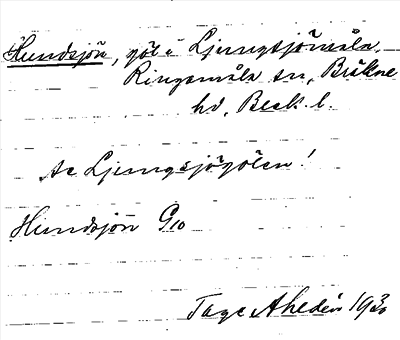 Hundsjön, göl i Ljungsjömåla,
Ringamåla sn, Bräkne
hd, Blek. l.
Se Ljungsjögölen!
Hundsjön G10
Tage Ahedén 1930